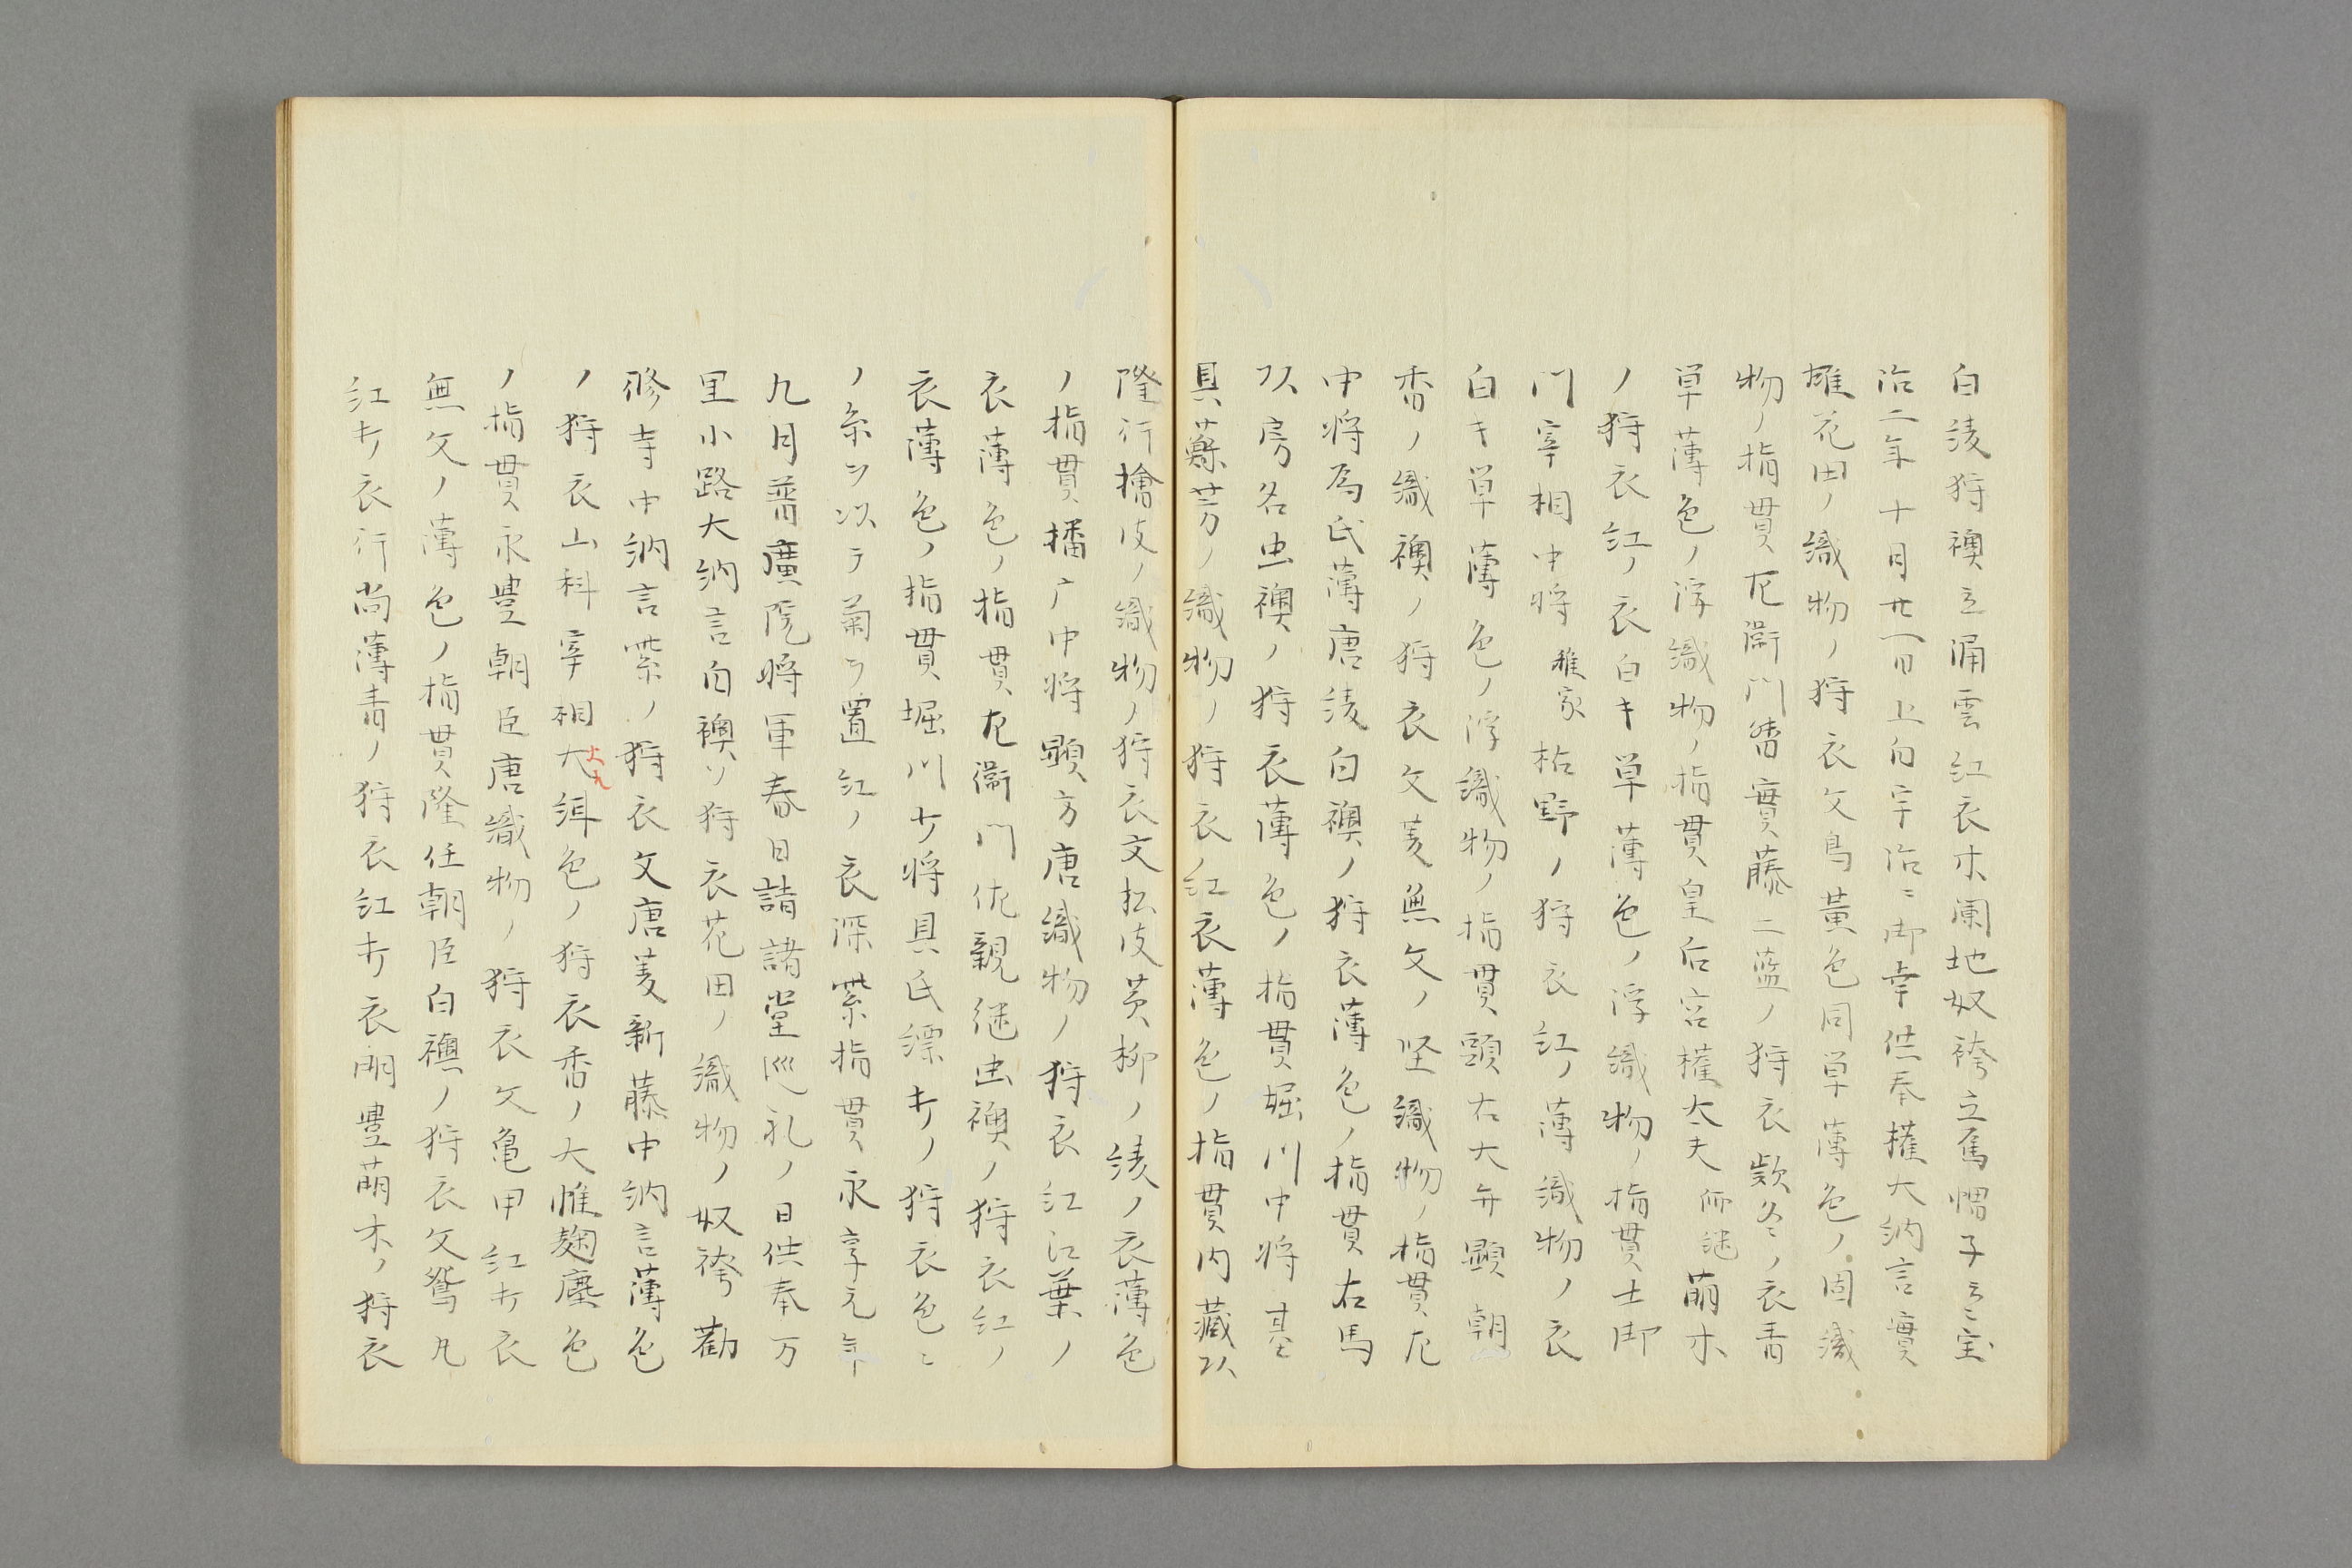 白綾狩襖立涌雲紅衣木闌地奴袴立烏帽子云々宝
治二年十月廿一日上向宇治ニ御幸供奉権大納言實
雄花田ノ織物ノ狩衣文鳥黄色同単薄色ノ固織
物ノ指貫左衛門督實藤二藍ノ狩衣欵冬ノ衣青
単薄色ノ浮織物ノ指貫皇后宮権大夫師継萌木
ノ狩衣紅ノ衣白キ単薄色ノ浮織物ノ指貫土御
門宰相中将雅家枯野ノ狩衣紅ノ薄織物ノ衣
白キ単薄色ノ浮織物ノ指貫頭右大弁顕朝
香ノ織襖ノ狩衣文菱無文ノ堅織物ノ指貫左
中将為氏薄唐綾白襖ノ狩衣薄色ノ指貫右馬
頭房名虫襖ノ狩衣薄色ノ指貫堀川中将基
具蘓芳ノ織物ノ狩衣紅衣薄色ノ指貫内蔵頭
隆行檜皮ノ織物ノ狩衣文松皮黄柳ノ綾ノ衣薄色
ノ指貫播广中将顕方唐織物ノ狩衣紅江葉ノ
衣薄色ノ指貫左衛門佐親継虫襖ノ狩衣紅ノ
衣薄色ノ指貫堀川少将具氏縹青ノ狩衣色ニ
ノ糸ヲ以テ菊ヲ置紅ノ衣深紫指貫永享元年
九月普廣院将軍春日詣諸堂巡礼ノ日供奉万
里小路大納言白襖ヲ狩衣花田ノ織物ノ奴袴勧
修寺中納言紫ノ狩衣文唐菱新藤中納言薄色
ノ狩衣山科宰相大紅色ノ狩衣香ノ大帷麹塵色
ノ指貫永豊朝臣唐織物ノ狩衣文亀甲紅打衣
無文ノ薄色ノ指貫隆任朝臣白襖ノ狩衣文鴛丸
紅打衣行尚薄青ノ狩衣紅打衣明豊萌木ノ狩衣